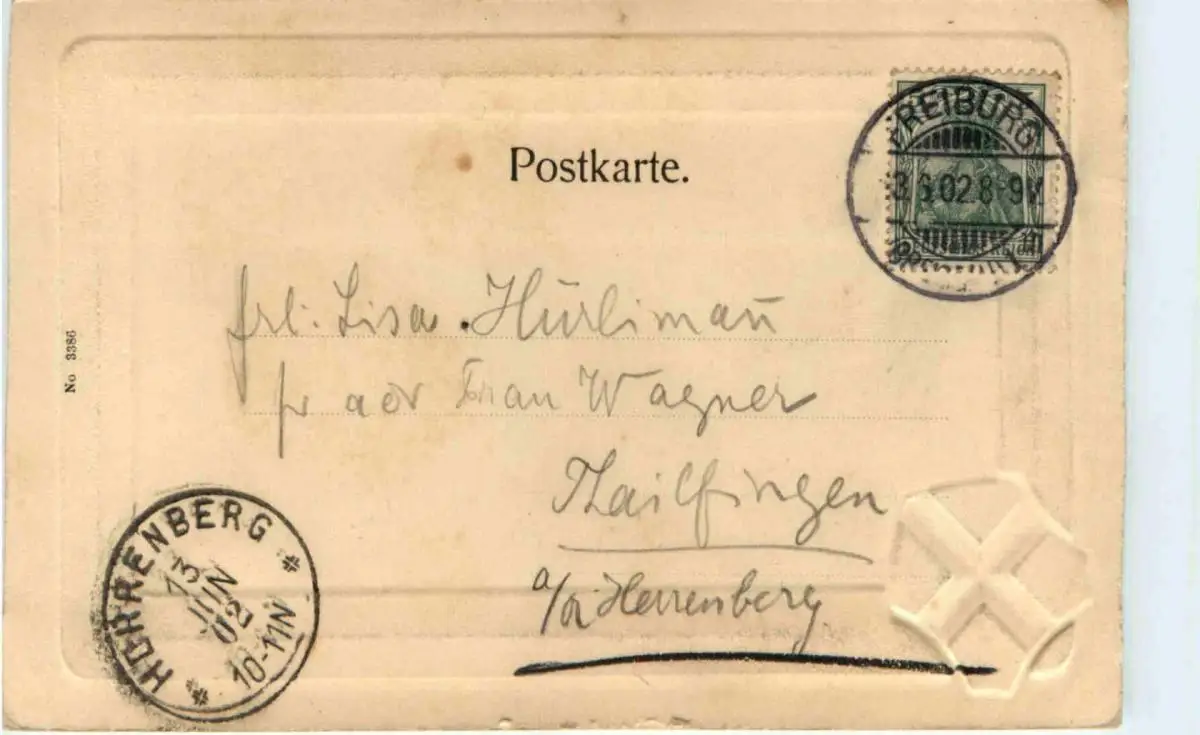 Postkarte.
FREIBURG
13.6.02.8-9V.
frl. Lisa Hürlimañ
pr adr Frau Wagner
Thailfingen
a/ Herrenberg
No 3386
HERRENBERG
13
JUN
02
10-11N